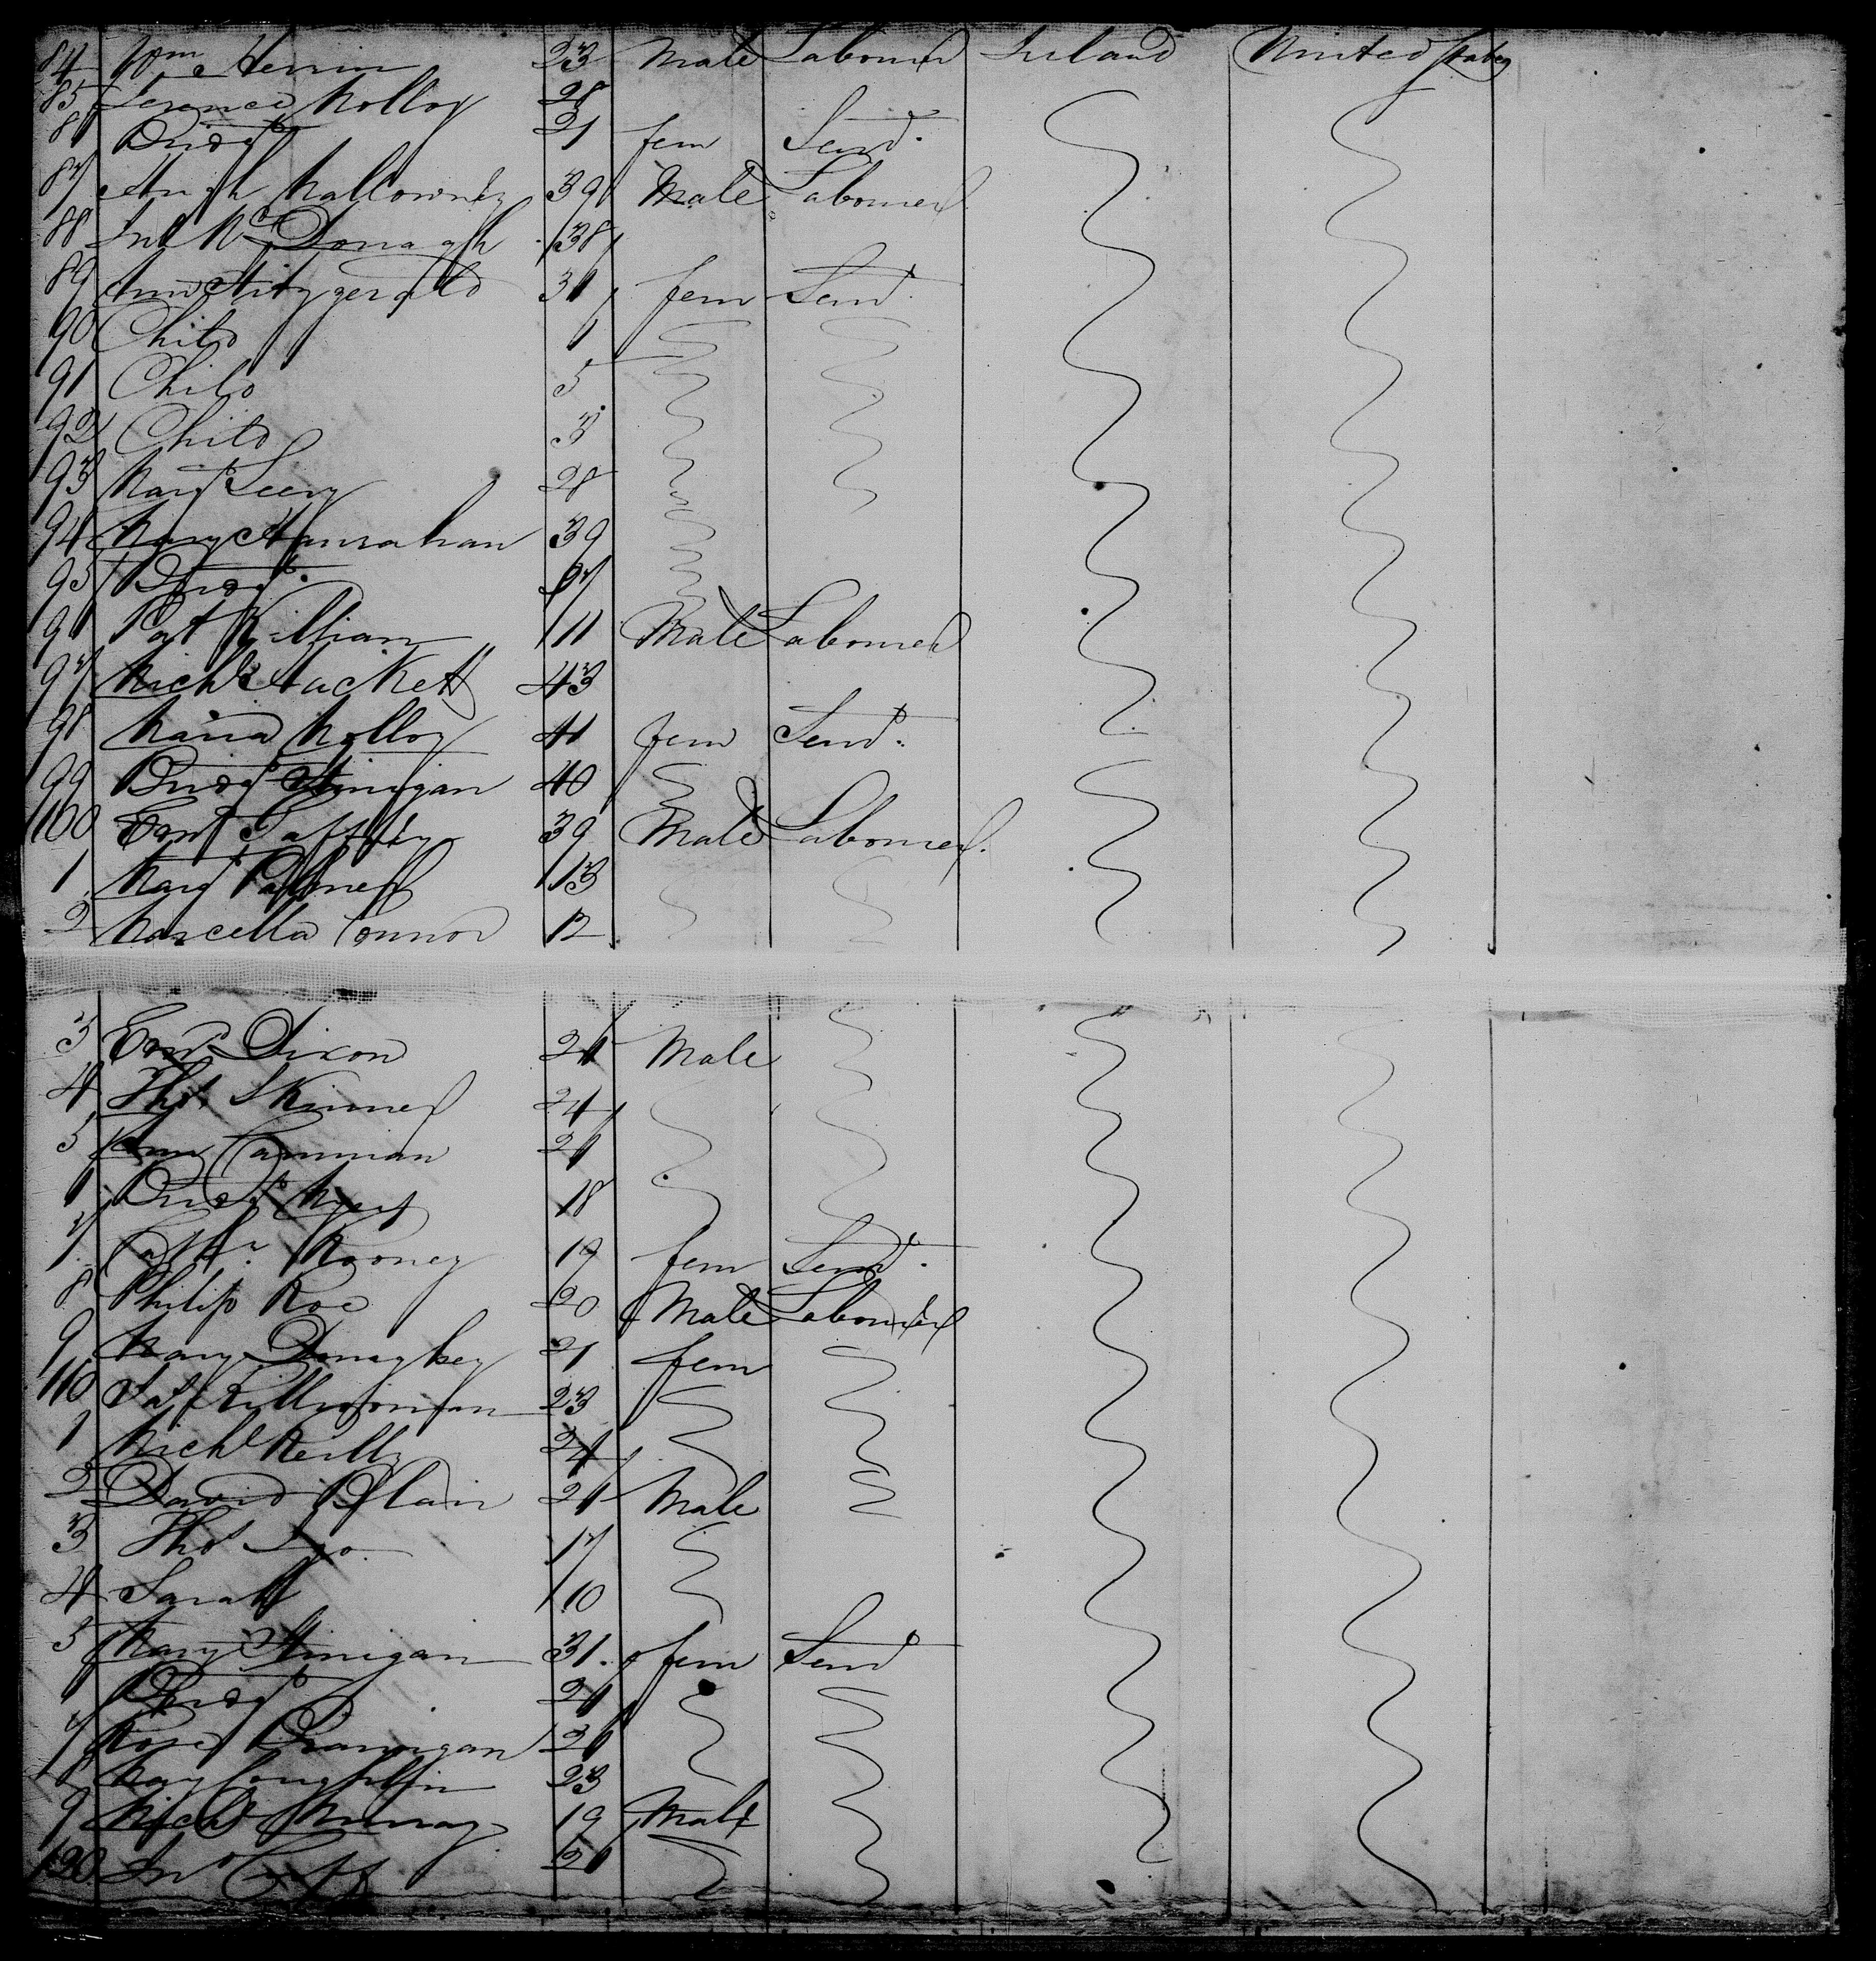 84 Wm Herrin 23 Male Labourer Ireland United States
85 Terence Molloy 28
86 Bridgt 21 fem Servt.
87 Hugh Mallowney 39 Male Labourer
88 Jno McDonagh 38
89 Ann Fitzgerald 36 fem Servt.
90 Child 1
91 Child 5
92 Child 3
93 Margt Leery 28
94 Mary Hanrahan 39
95 Bridgt.
96 Pat Killian 16 Male Labourer
97 Michl Hackett 43
98 Maria Molloy 41 fem Servt.
99 Bridgt Finigan 40
100 Edwd Gaffney 39 Male Labourer
1 Margt Palmer 13
2 Marcella Connor 12
3 Edwd Dixon 26 Male
4 Thos Skinner 24
5 Ann 26
6 Bridgt 18
7 Cathn. Rooney 19 fem Servt.
8 Philip Roe 20 Male Labourer
9 Mary Donaghey 21 fem
110 23
1 Michl Reilly 24
2 David Blain 26 Male
3 Thos Do. 17
4 Sarah 10
5 Mary Finigan 31. fem Servt
6 Bridgt 26
7 Rose Brannigan 26
8 May Coughlin 23
9 Michl Murray 19 Male
120 Jno